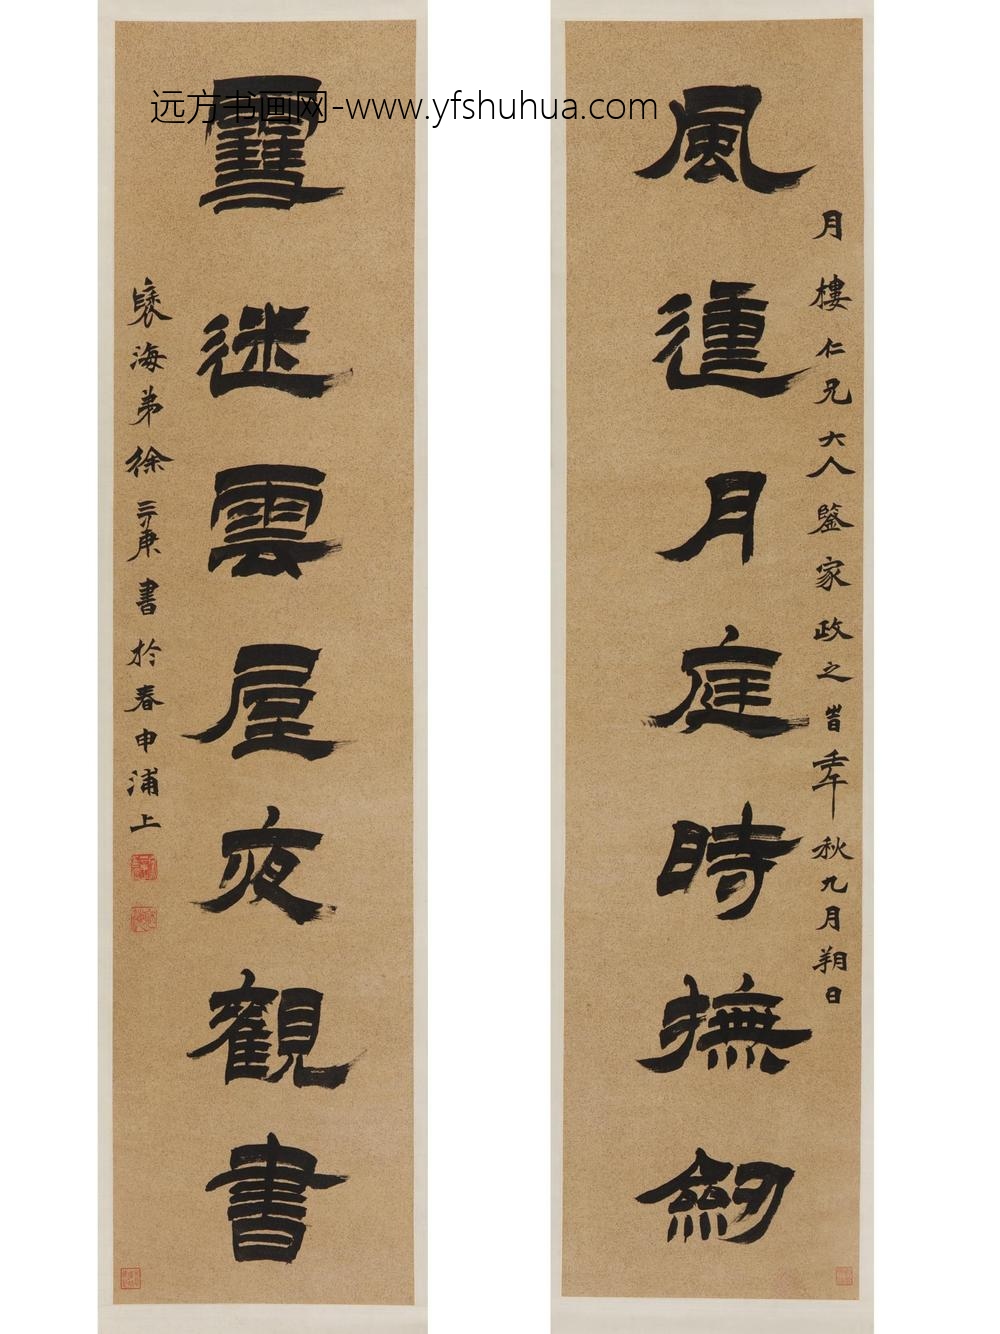 远方书画网-www.yfshuhua.com
風運月庭時撫劍
月樓仁兄大人鑒家政之 旹壬午秋九月朔日
雪迷雲屋夜觀書
襃海弟徐三庚書於春申浦上